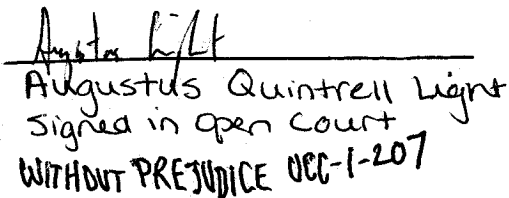 Augustus Light
Augustus Quintrell Light
Signed in open Court
WITHOUT PREJUDICE UCC-1-207